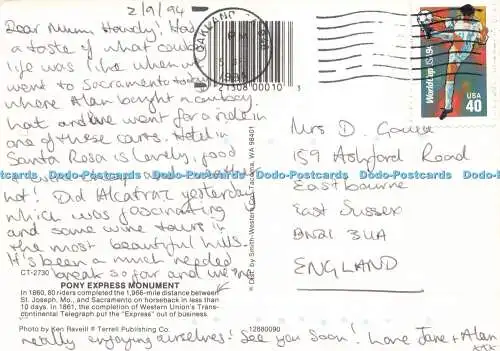 2/9/94
Dear Mum Howdy! Had
a taste of what cowboy
life was like when we
went to Sacramento today
where Alan bought a cowboy
hat and we went for a ride in
one of these carts. Hotel in
Santa Rosa is lovely, good
hot! Did Alcatraz yesterday
which was fascinating
and some wine tours in
the most beautiful hills.
It's been a much needed
break so far and we're
really enjoying ourselves! See you soon! Love Jane + Alan
xxx
CT-2730
PONY EXPRESS MONUMENT
In 1860, 80 riders completed the 1,966-mile distance between
St. Joseph, Mo., and Sacramento on horseback in less than
10 days. In 1861, the completion of Western Union's Trans-
continental Telegraph put the "Express" out of business.
Photo by Ken Raveill © Terrell Publishing Co.
12880090
© Dist. by Smith-Western Co., Tacoma, WA 98401
OAKLAND
PM
1994
21308 00010
World Cup USA 94
USA
40
Mrs D.
159 Ashford Road
Eastbourne
East Sussex
BN21 3UA
ENGLAND
Dodo-Postcards Dodo-Postcards Dodo-Postcards Dodo-Postcards Dodo-Postcards